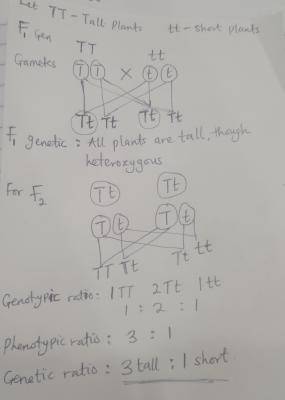 Let TT - Tall Plants    tt - short plants
F₁ Gen
TT    tt
Gametes  T T × t t
Tt Tt Tt Tt
F₁ genetic : All plants are tall, though
heterozygous
For F₂  Tt  Tt
T t  T t
TT Tt Tt tt
Genotypic ratio: 1TT 2Tt 1tt
1 : 2 : 1
Phenotypic ratio: 3 : 1
Genetic ratio: 3 tall : 1 short